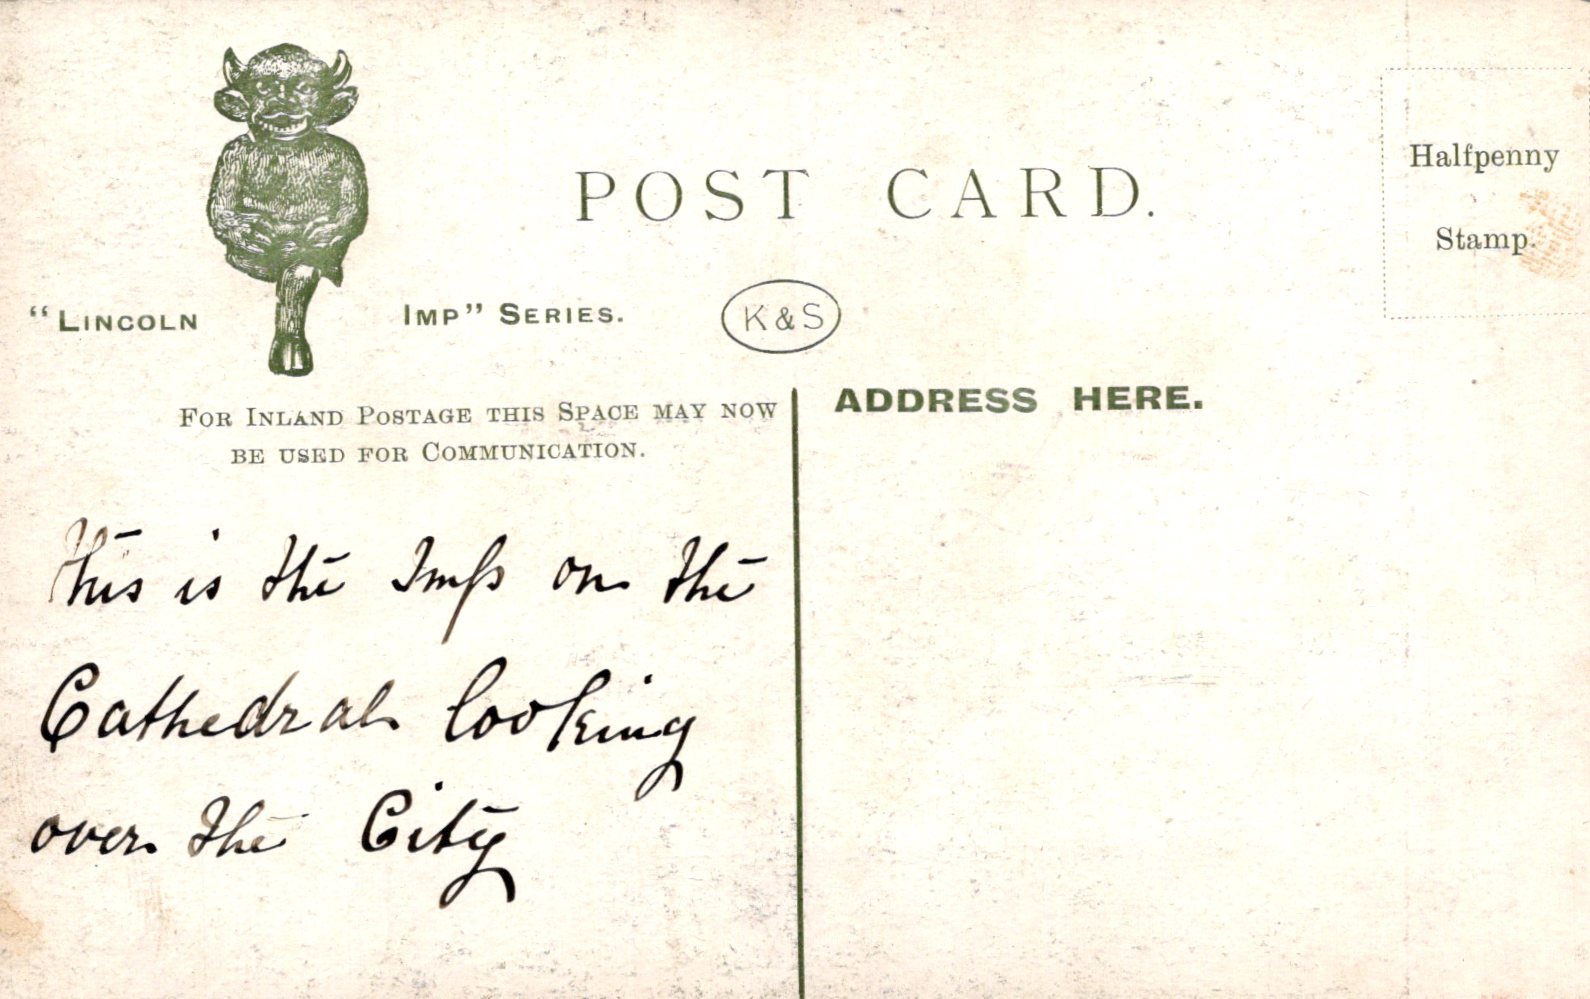 POST CARD.
Halfpenny
Stamp.
"LINCOLN IMP" SERIES.
K & S
FOR INLAND POSTAGE THIS SPACE MAY NOW
BE USED FOR COMMUNICATION.
ADDRESS HERE.
This is the Imp on the
Cathedral looking
over the City